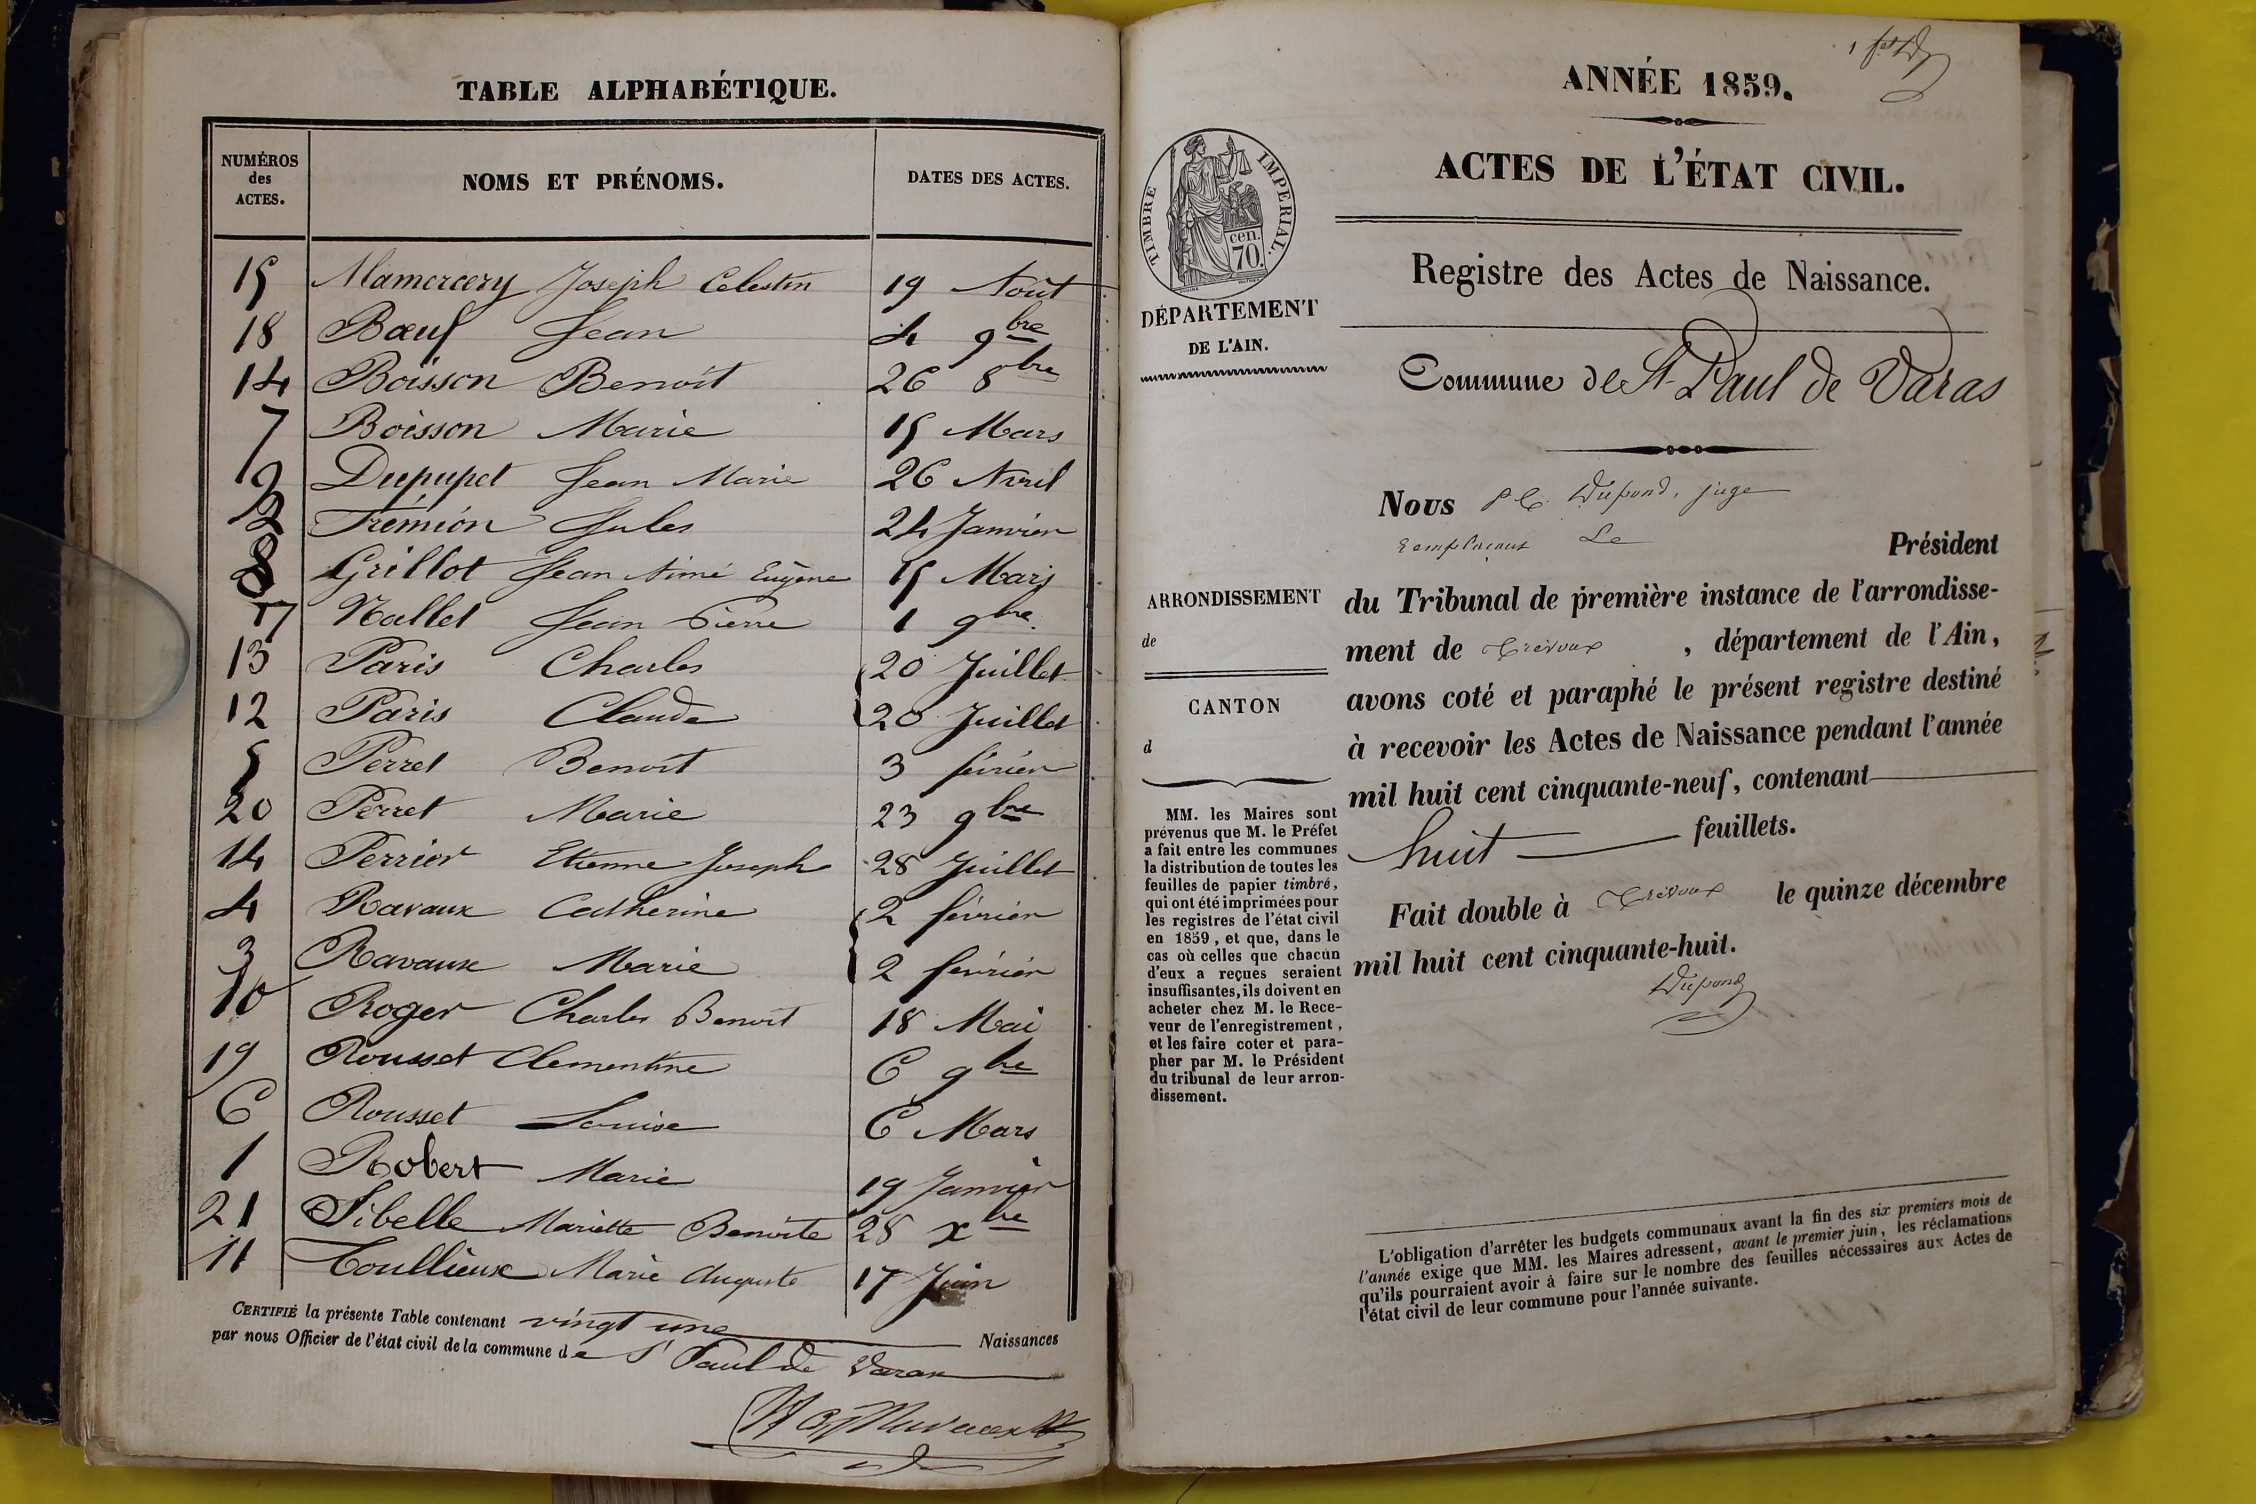 TABLE ALPHABÉTIQUE.
NUMÉROS des ACTES. NOMS ET PRÉNOMS. DATES DES ACTES.
15 Mamercery Joseph Celestin 19 Août
18 Bœuf Jean 4 9bre
14 Boisson Benoît 26 8bre
7 Boisson Marie 15 Mars
9 Dupupet Jean Marie 26 Avril
2 Frémion Jules 24 Janvier
8 Grillot Jean Aimé Eugène 15 Mars
17 Nallet Jean Pierre 1 9bre
13 Paris Charles 20 Juillet
12 Paris Claude 20 Juillet
5 Perret Benoît 3 février
20 Perret Marie 23 9bre
14 Perrier Etienne Joseph 28 Juillet
4 Ravaux Catherine 2 février
3 Ravaux Marie 2 février
10 Roger Charles Benoît 18 Mai
19 Rousset Clementine 6 9bre
6 Rousset Louise 6 Mars
1 Robert Marie 19 Janvier
21 Sibelle Mariette Benoite 28 xbre
11 Toullieux Marie Auguste 17 Juin
CERTIFIÉ la présente Table contenant vingt une Naissances
par nous Officier de l'état civil de la commune de St Paul de Varax
ANNÉE 1859.
ACTES DE L'ÉTAT CIVIL.
TIMBRE IMPERIAL.
cen.
70.
DÉPARTEMENT
DE L'AIN.
Registre des Actes de Naissance.
Commune de St Paul de Varas
ARRONDISSEMENT
de
CANTON
d
MM. les Maires sont
prévenus que M. le Préfet
a fait entre les communes
la distribution de toutes les
feuilles de papier timbré,
qui ont été imprimées pour
les registres de l'état civil
en 1859, et que, dans le
cas où celles que chacun
d'eux a reçues seraient
insuffisantes, ils doivent en
acheter chez M. le Rece-
veur de l'enregistrement,
et les faire coter et para-
pher par M. le Président
du tribunal de leur arron-
dissement.
Nous Dupond, juge
remplacant Le Président
du Tribunal de première instance de l'arrondisse-
ment de Trévoux, département de l'Ain,
avons coté et paraphé le présent registre destiné
à recevoir les Actes de Naissance pendant l'année
mil huit cent cinquante-neuf, contenant
huit feuillets.
Fait double à Trévoux le quinze décembre
mil huit cent cinquante-huit.
Dupond
L'obligation d'arrêter les budgets communaux avant la fin des six premiers mois de
l'année exige que MM. les Maires adressent, avant le premier juin, les réclamations
qu'ils pourraient avoir à faire sur le nombre des feuilles nécessaires aux Actes de
l'état civil de leur commune pour l'année suivante.